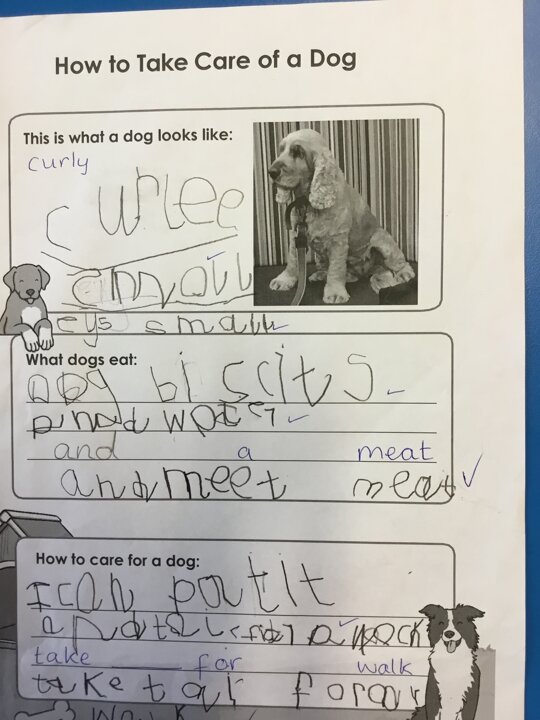 How to Take Care of a Dog
This is what a dog looks like:
curly
curlee
eys small
What dogs eat:
Dog biscits
and water
and a meat
and meet meat
How to care for a dog:
I can pat it
take for walk
take